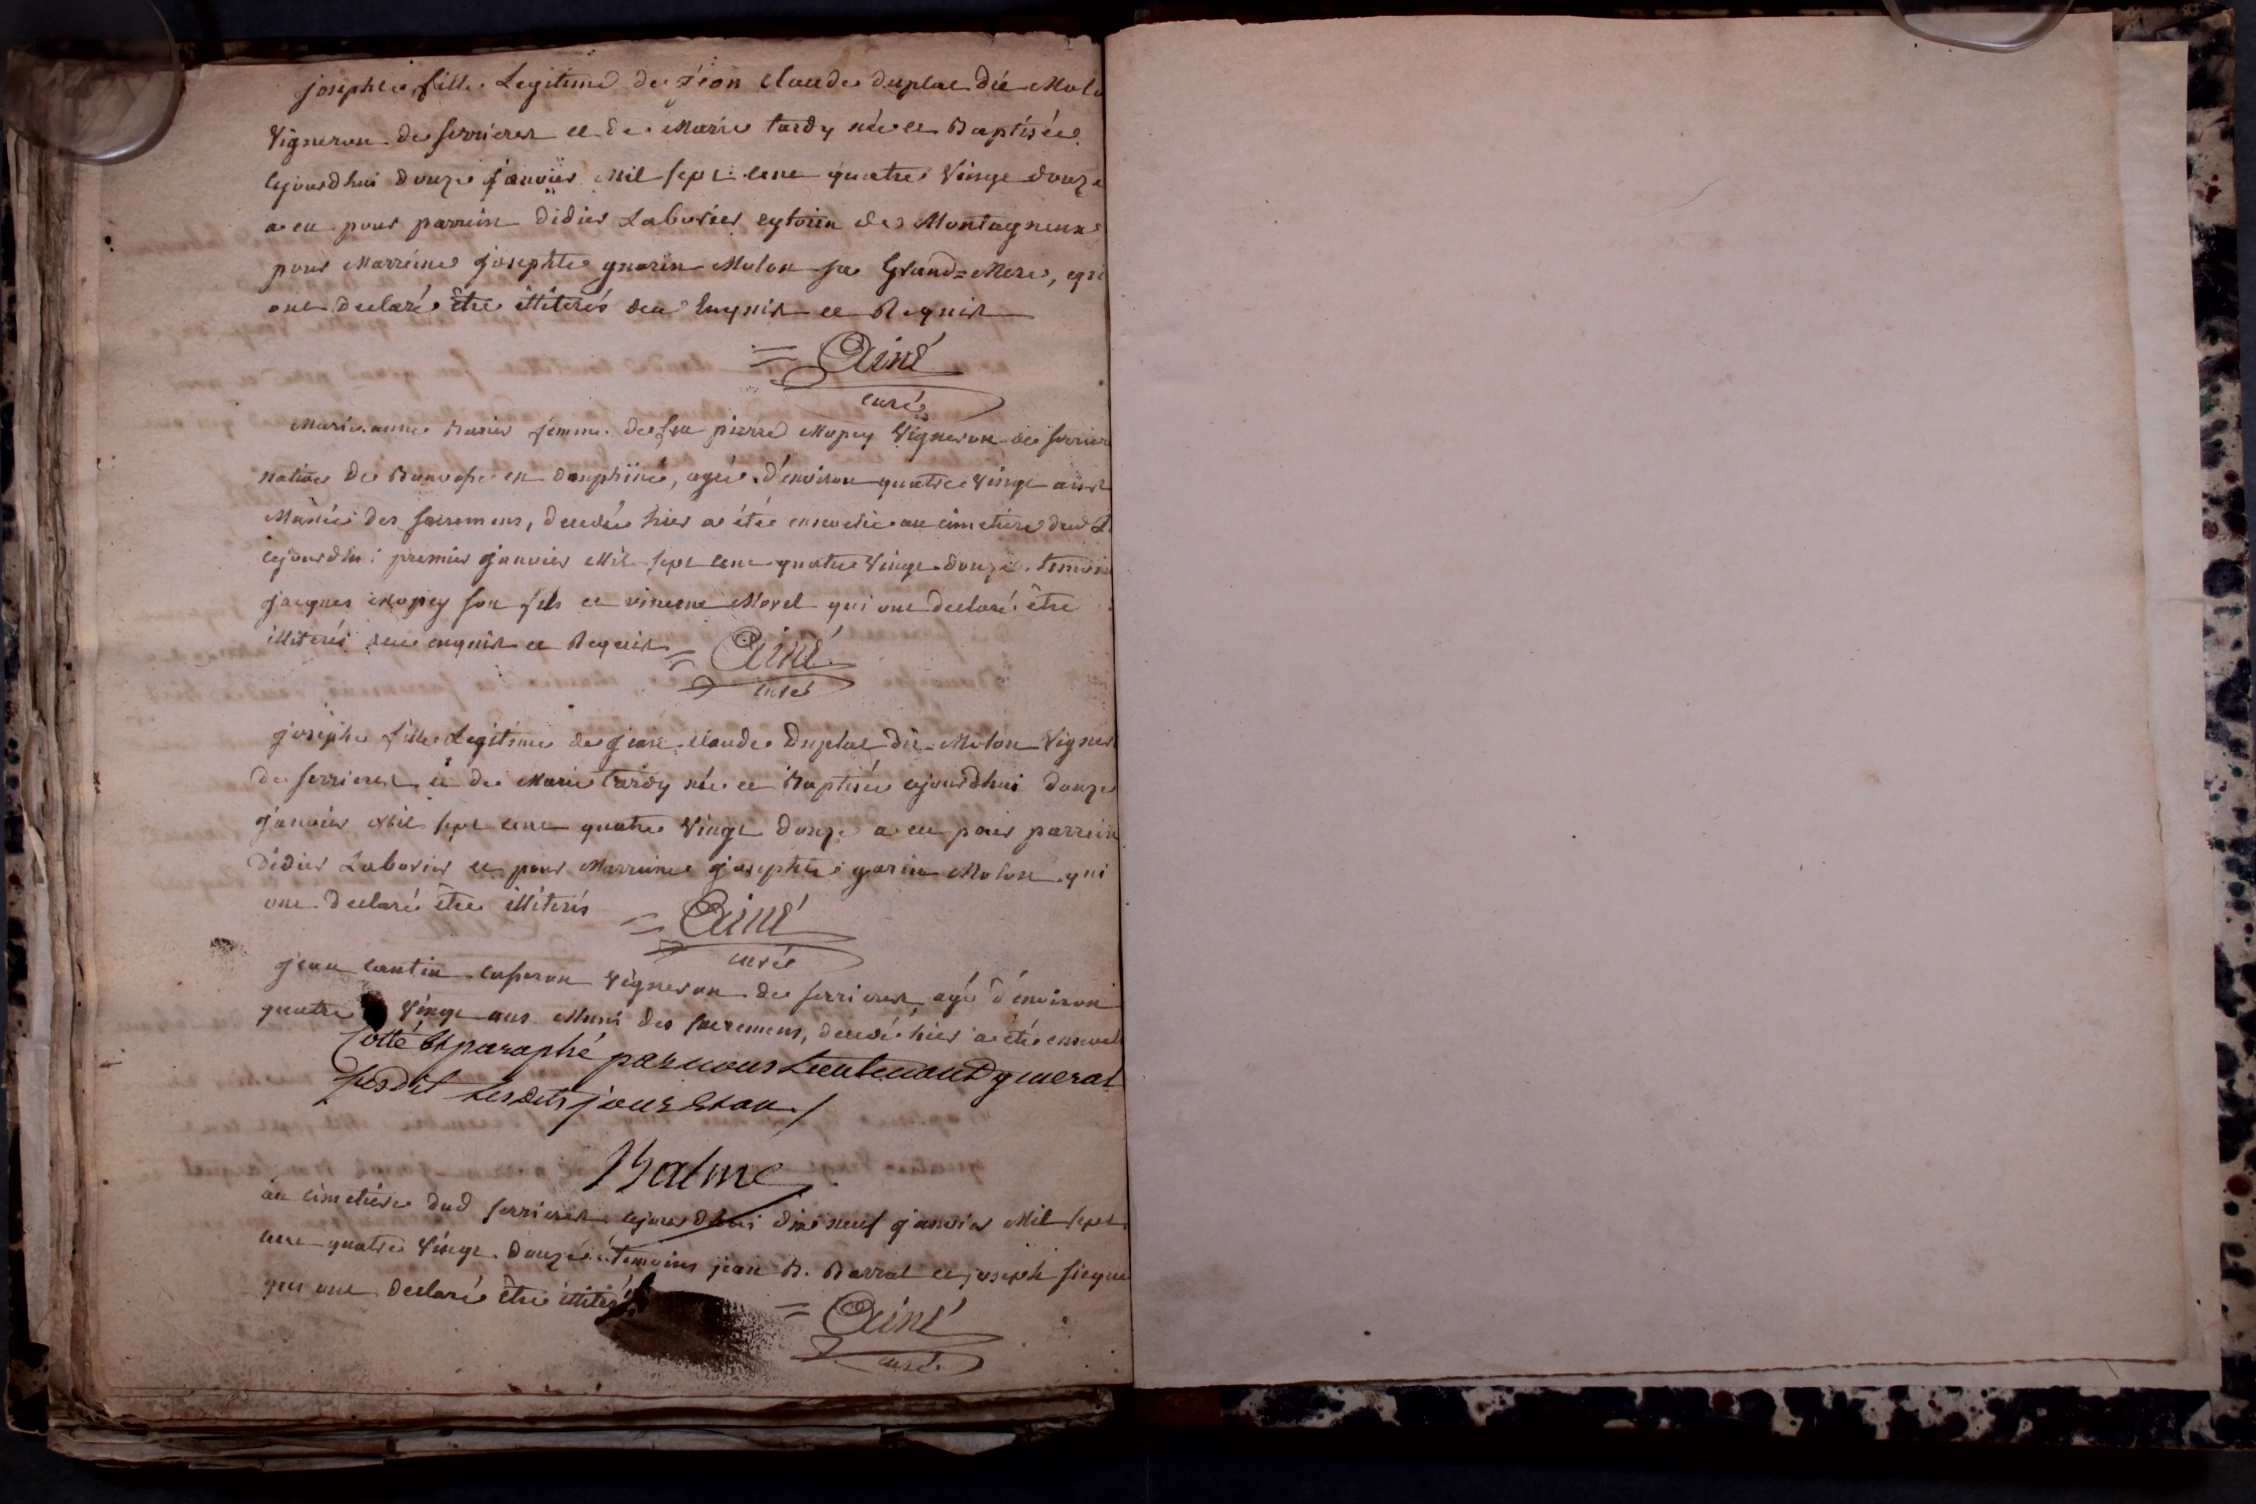 josephte fille Legitime de Jean Claude duplat dit Molo
Vigneron de serrieres et de Marie tardy née et Baptisée
cejourdhui douze janvier Mil sept cent quatre Vingt douze
a eu pour parrein didier Laborier citoien de Montagneux
pour Marreine josephte guarin Molon sa Grand=Mere, qui
ont declaré être illiterés deu Enquist et Requist
= Ainé
curé
Marie anne femme de feu pierre Mopey Vigneron de serrier
native de en dauphiné, agée d'environ quatre vingt ans
Munie des sacremens, decedée hier a été ensevelie au cimetiere dud S.
cejourdhui premier janvier Mil sept cent quatre Vingt douze. temoins
jacques Mopey son fils et vincent Morel qui ont declaré être
illiterés deu enquist et Requist = Ainé
curé
josephte fille Legitime de jean claude Duplat dit Molon Vigner
de serrieres et de Marie tardy née et Baptisée cejourdhui douze
janvier Mil sept cent quatre Vingt douze a eu pour parrein
didier Laborier et pour Marreine josephte garin Molon qui
ont declaré être illiterés = Ainé
curé
jean Vigneron de serrieres agé d'environ
quatre Vingt ans Muni des sacremens, decedé hier a été ensevel
Cotté Et paraphé par nous Lieutenant general
susdit Les dits jour Et an /
Balme
au cimetiere dud serrieres cejourdhui dix neuf janvier Mil sept
cent quatre Vingt douze temoins jean B. Barral et joseph
qui ont declaré être illiterés
= Ainé
curé